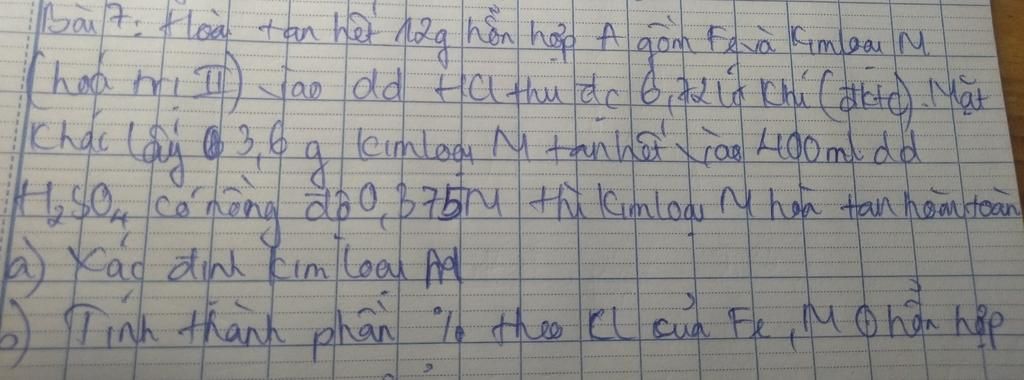 Bài 7: Hoà tan hết 12g hỗn hợp A gồm Fe và kim loại M
(hoá trị II) vào dd HCl thu đc 6,72 lít khí (đktc). Mặt
khác lấy 3,6 g kim loại M tan hết vào 400ml dd
H₂SO₄ có nồng độ 0,375M thì kim loại M hoà tan hoàn toàn
a) Xác định kim loại M
b) Tính thành phần % theo KL của Fe, M hỗn hợp